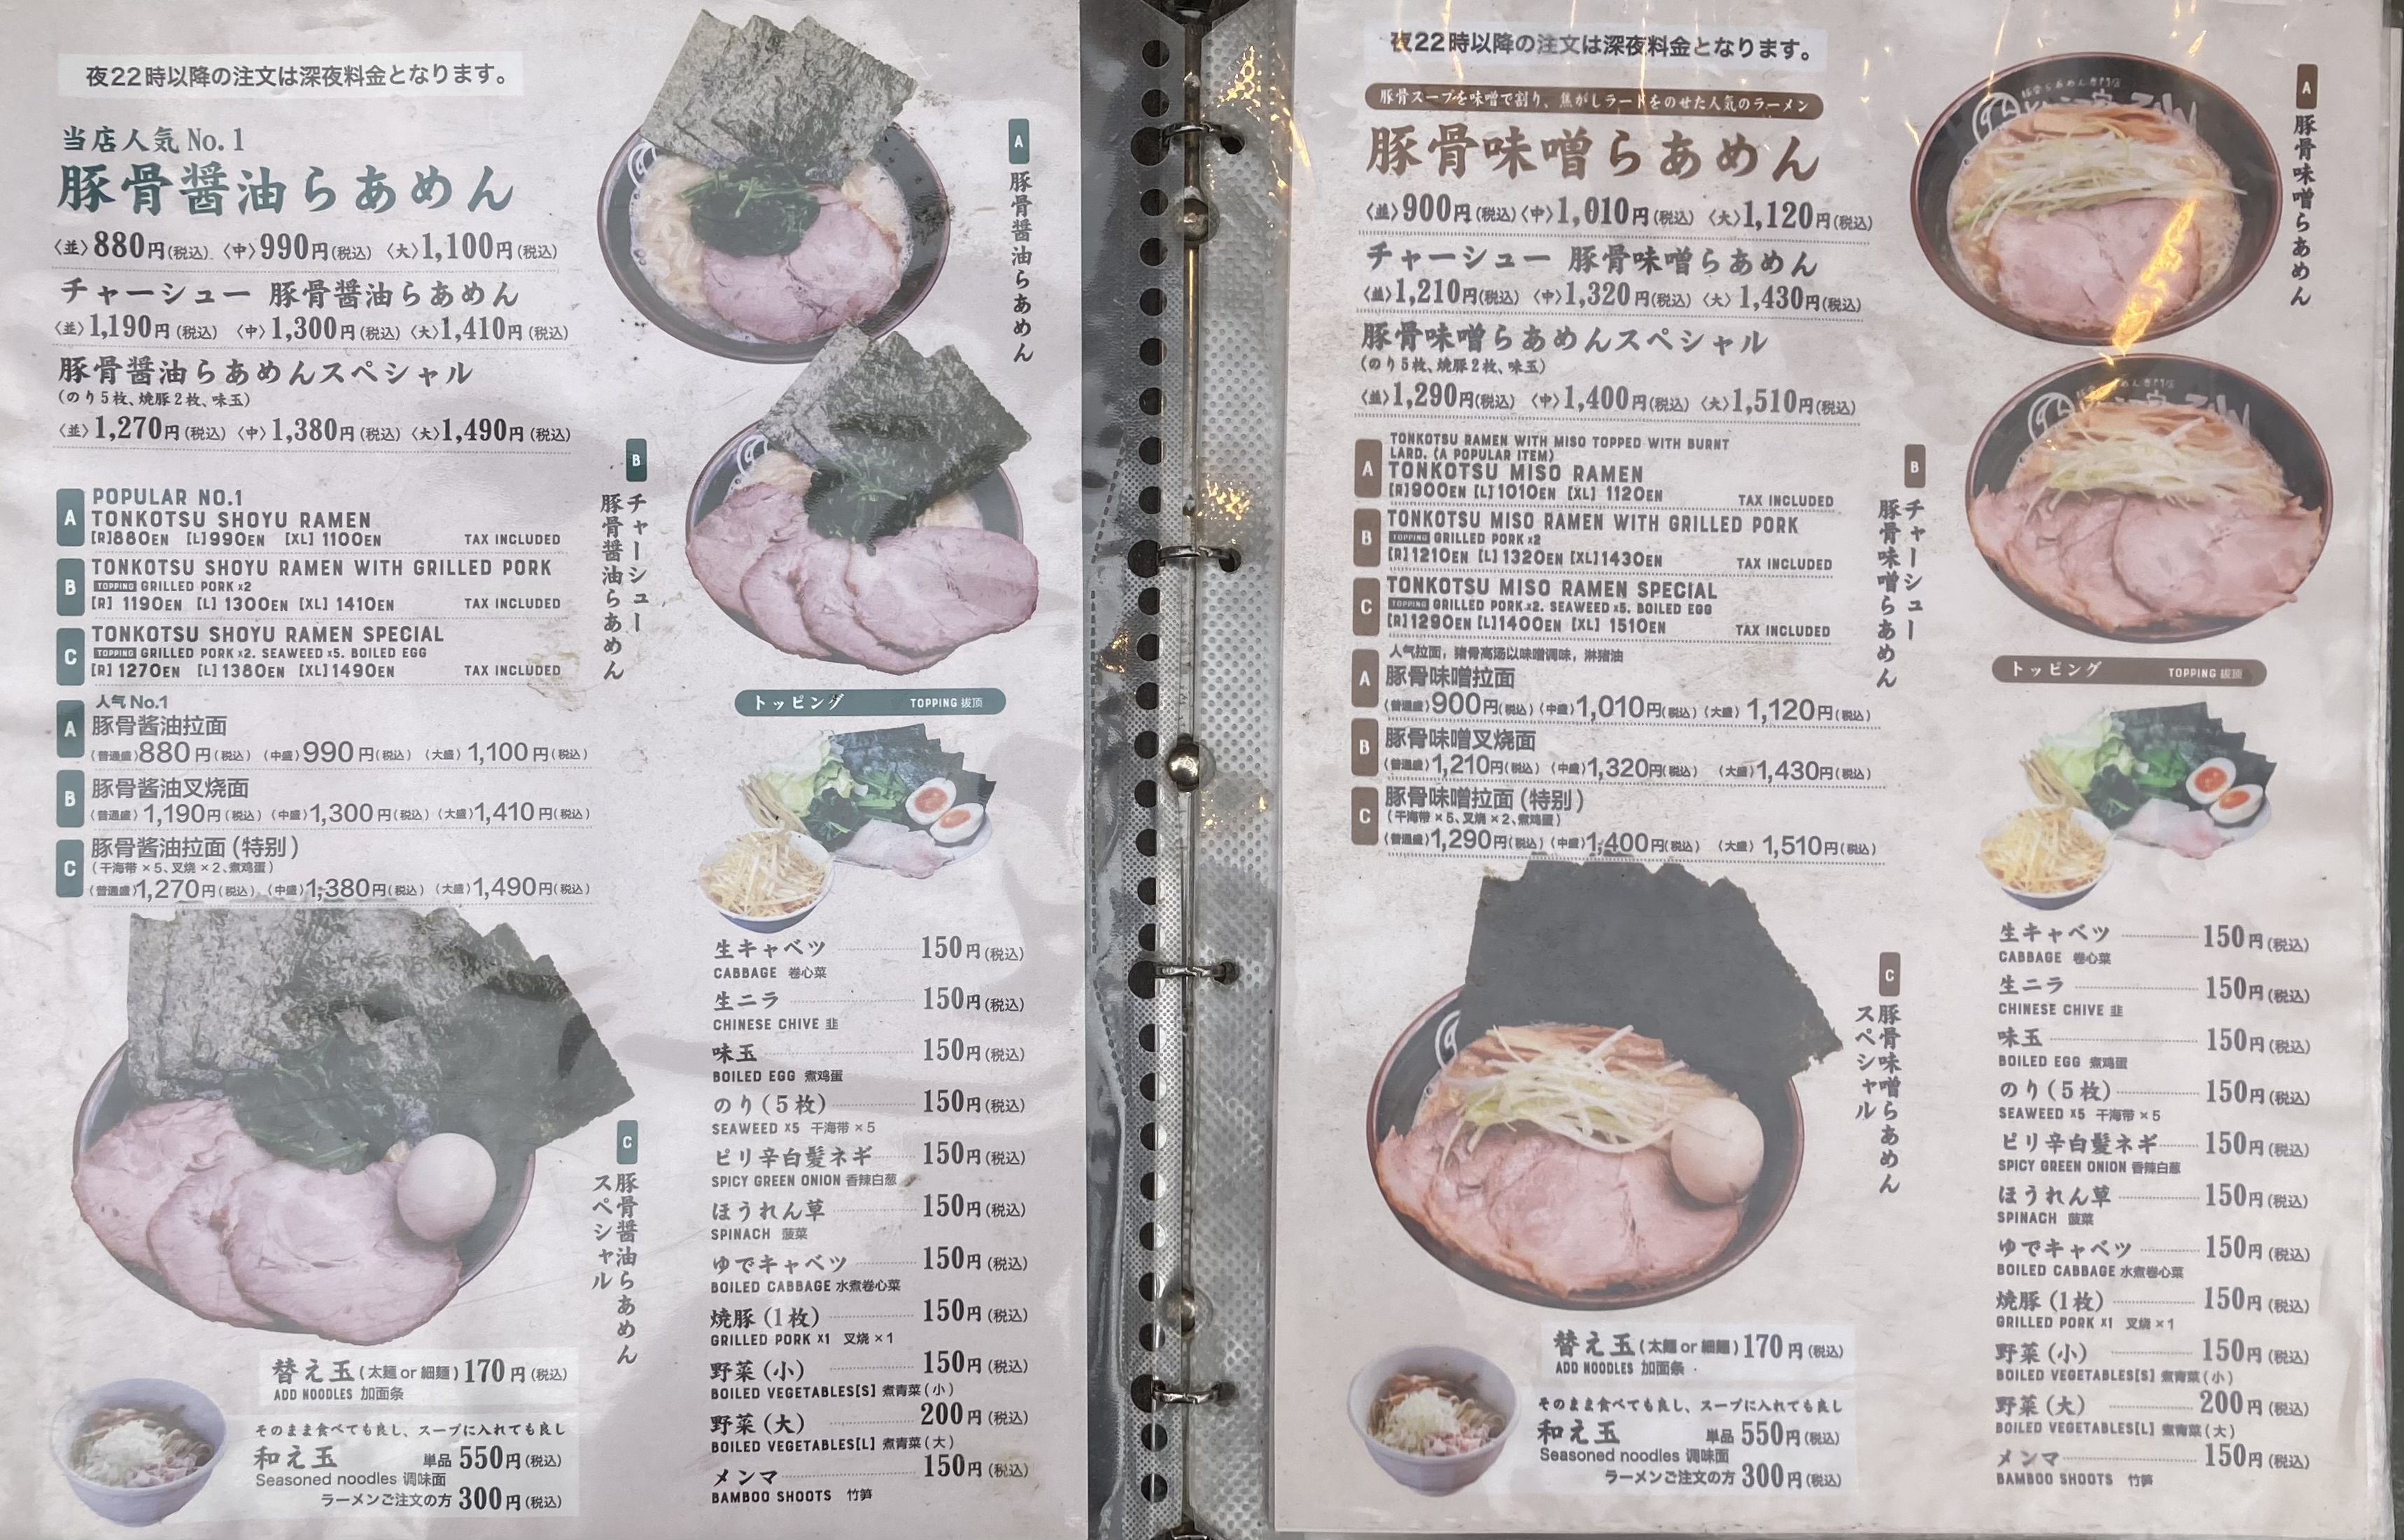 夜22時以降の注文は深夜料金となります。
当店人気 No.1
豚骨醤油らあめん
〈並〉880円(税込) 〈中〉990円(税込) 〈大〉1,100円(税込)
チャーシュー 豚骨醤油らあめん
〈並〉1,190円(税込) 〈中〉1,300円(税込) 〈大〉1,410円(税込)
豚骨醤油らあめんスペシャル
(のり5枚、焼豚2枚、味玉)
〈並〉1,270円(税込) 〈中〉1,380円(税込) 〈大〉1,490円(税込)
A
POPULAR NO.1
TONKOTSU SHOYU RAMEN
[R]880EN [L]990EN [XL] 1100EN TAX INCLUDED
B
TONKOTSU SHOYU RAMEN WITH GRILLED PORK
TOPPING GRILLED PORK x2
[R] 1190EN [L] 1300EN [XL] 1410EN TAX INCLUDED
C
TONKOTSU SHOYU RAMEN SPECIAL
TOPPING GRILLED PORK x2. SEAWEED x5. BOILED EGG
[R] 1270EN [L] 1380EN [XL] 1490EN TAX INCLUDED
A
人气 No.1
豚骨酱油拉面
(普通盛)880円(税込) (中盛)990円(税込) (大盛)1,100円(税込)
B
豚骨酱油叉烧面
(普通盛)1,190円(税込) (中盛)1,300円(税込) (大盛)1,410円(税込)
C
豚骨酱油拉面(特别)
(干海带×5、叉烧×2、煮鸡蛋)
(普通盛)1,270円(税込) (中盛)1,380円(税込) (大盛)1,490円(税込)
A 豚骨醤油らあめん
B チャーシュー
豚骨醤油らあめん
C 豚骨醤油らあめん
スペシャル
替え玉(太麺 or 細麺)170円(税込)
ADD NOODLES 加面条
そのまま食べても良し、スープに入れても良し
和え玉 単品 550円(税込)
Seasoned noodles 调味面
ラーメンご注文の方 300円(税込)
トッピング TOPPING 拔顶
生キャベツ 150円(税込)
CABBAGE 卷心菜
生ニラ 150円(税込)
CHINESE CHIVE 韭
味玉 150円(税込)
BOILED EGG 煮鸡蛋
のり(5枚) 150円(税込)
SEAWEED x5 干海带×5
ピリ辛白髪ネギ 150円(税込)
SPICY GREEN ONION 香辣白葱
ほうれん草 150円(税込)
SPINACH 菠菜
ゆでキャベツ 150円(税込)
BOILED CABBAGE 水煮卷心菜
焼豚(1枚) 150円(税込)
GRILLED PORK x1 叉烧×1
野菜(小) 150円(税込)
BOILED VEGETABLES[S] 煮青菜(小)
野菜(大) 200円(税込)
BOILED VEGETABLES[L] 煮青菜(大)
メンマ 150円(税込)
BAMBOO SHOOTS 竹笋
夜22時以降の注文は深夜料金となります。
豚骨スープを味噌で割り、焦がしラードをのせた人気のラーメン
豚骨味噌らあめん
〈並〉900円(税込) 〈中〉1,010円(税込) 〈大〉1,120円(税込)
チャーシュー 豚骨味噌らあめん
〈並〉1,210円(税込) 〈中〉1,320円(税込) 〈大〉1,430円(税込)
豚骨味噌らあめんスペシャル
(のり5枚、焼豚2枚、味玉)
〈並〉1,290円(税込) 〈中〉1,400円(税込) 〈大〉1,510円(税込)
A
TONKOTSU RAMEN WITH MISO TOPPED WITH BURNT
LARD. (A POPULAR ITEM)
TONKOTSU MISO RAMEN
[R]900EN [L]1010EN [XL] 1120EN TAX INCLUDED
B
TONKOTSU MISO RAMEN WITH GRILLED PORK
TOPPING GRILLED PORK x2
[R]1210EN [L]1320EN [XL]1430EN TAX INCLUDED
C
TONKOTSU MISO RAMEN SPECIAL
TOPPING GRILLED PORK x2. SEAWEED x5. BOILED EGG
[R]1290EN [L]1400EN [XL] 1510EN TAX INCLUDED
A
人气拉面，猪骨高汤以味噌调味，淋猪油
豚骨味噌拉面
(普通盛)900円(税込) (中盛)1,010円(税込) (大盛)1,120円(税込)
B
豚骨味噌叉烧面
(普通盛)1,210円(税込) (中盛)1,320円(税込) (大盛)1,430円(税込)
C
豚骨味噌拉面(特别)
(干海带×5、叉烧×2、煮鸡蛋)
(普通盛)1,290円(税込) (中盛)1,400円(税込) (大盛)1,510円(税込)
A 豚骨味噌らあめん
B チャーシュー
豚骨味噌らあめん
C 豚骨味噌らあめん
スペシャル
替え玉(太麺 or 細麺)170円(税込)
ADD NOODLES 加面条
そのまま食べても良し、スープに入れても良し
和え玉 単品 550円(税込)
Seasoned noodles 调味面
ラーメンご注文の方 300円(税込)
トッピング TOPPING 拔顶
生キャベツ 150円(税込)
CABBAGE 卷心菜
生ニラ 150円(税込)
CHINESE CHIVE 韭
味玉 150円(税込)
BOILED EGG 煮鸡蛋
のり(5枚) 150円(税込)
SEAWEED x5 干海带×5
ピリ辛白髪ネギ 150円(税込)
SPICY GREEN ONION 香辣白葱
ほうれん草 150円(税込)
SPINACH 菠菜
ゆでキャベツ 150円(税込)
BOILED CABBAGE 水煮卷心菜
焼豚(1枚) 150円(税込)
GRILLED PORK x1 叉烧×1
野菜(小) 150円(税込)
BOILED VEGETABLES[S] 煮青菜(小)
野菜(大) 200円(税込)
BOILED VEGETABLES[L] 煮青菜(大)
メンマ 150円(税込)
BAMBOO SHOOTS 竹笋